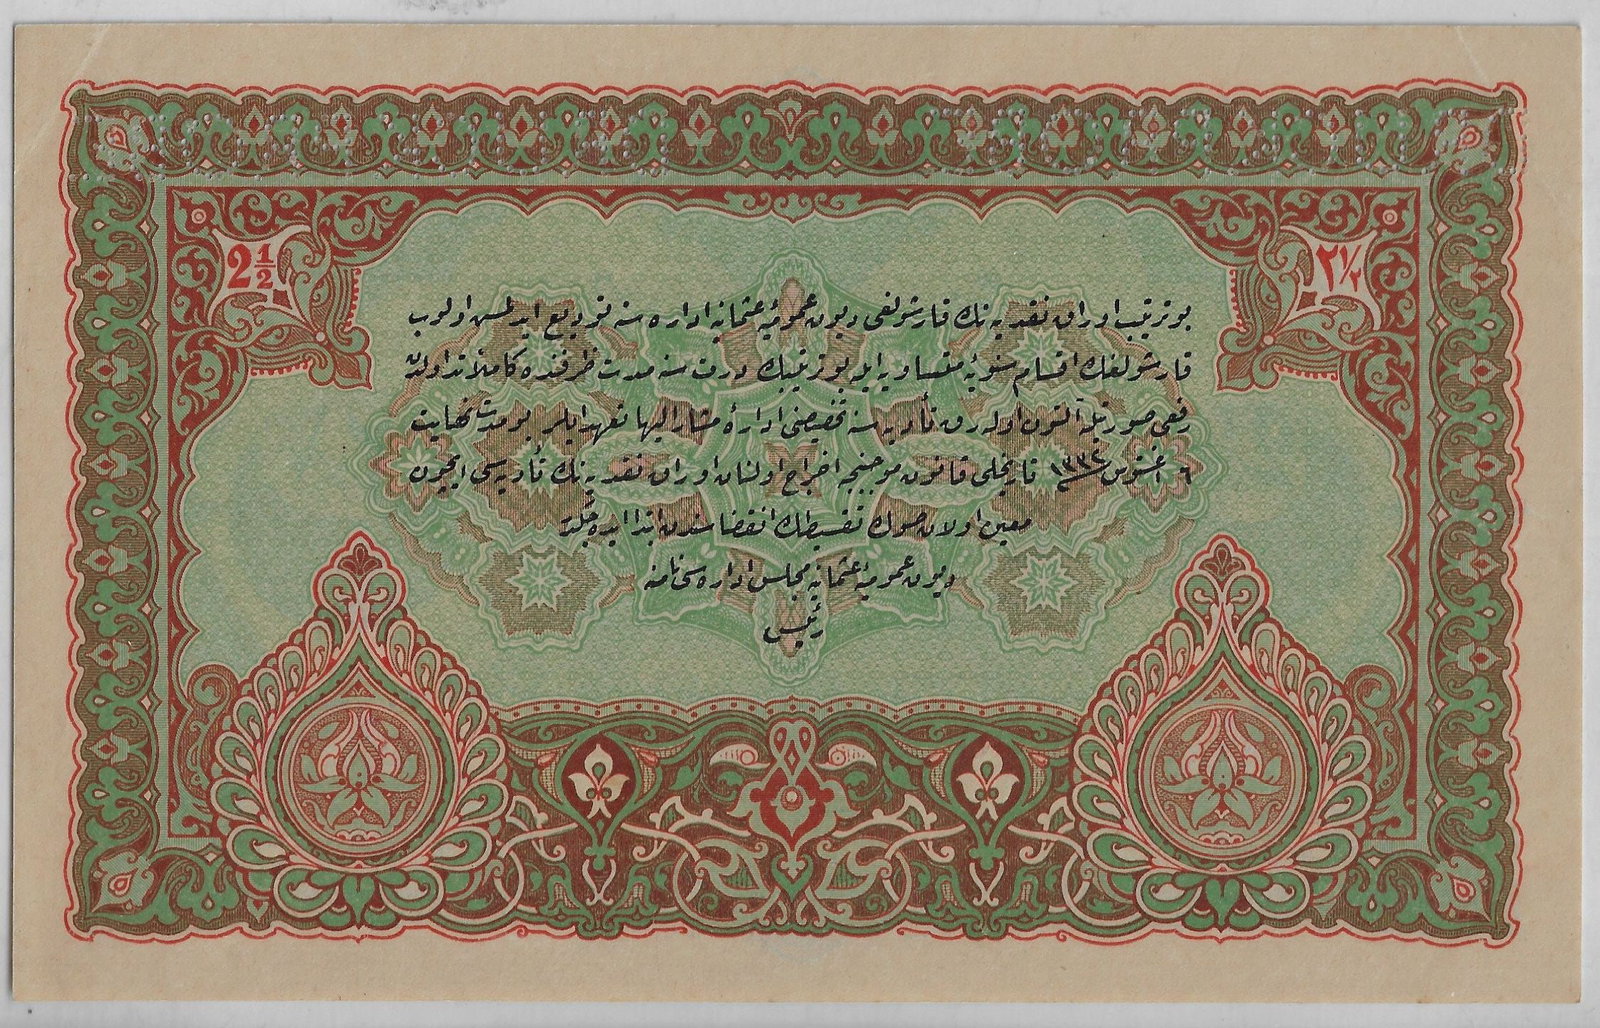 2 1/2
٢ ١/٢
بو ترتيب اوراق نقديه نك قارشولغى ديون عموميۀ عثمانيه اداره سنه توديع ايدلمش اولوب
قارشولغك اقسام سنويۀ متساويه ايله بو ترتيبك درت سنه مدت ظرفنده كاملاً تداولدن
رفعى صورتيله آلتون اوله رق تأديه سنه تخصيصنى ادارۀ مشار اليها تعهد ايلر بو مدت نهايت
١٦ اغستوس ١٣٣٢ تاريخلى قانون موجبنجه اخراج اولنان اوراق نقديه نك تأديه سى ايچون
معين اولان صوك تقسيطك انقضاسندن ابتدا ايده جكدر
ديون عموميۀ عثمانيه مجلس اداره سى نامنه
رئيس